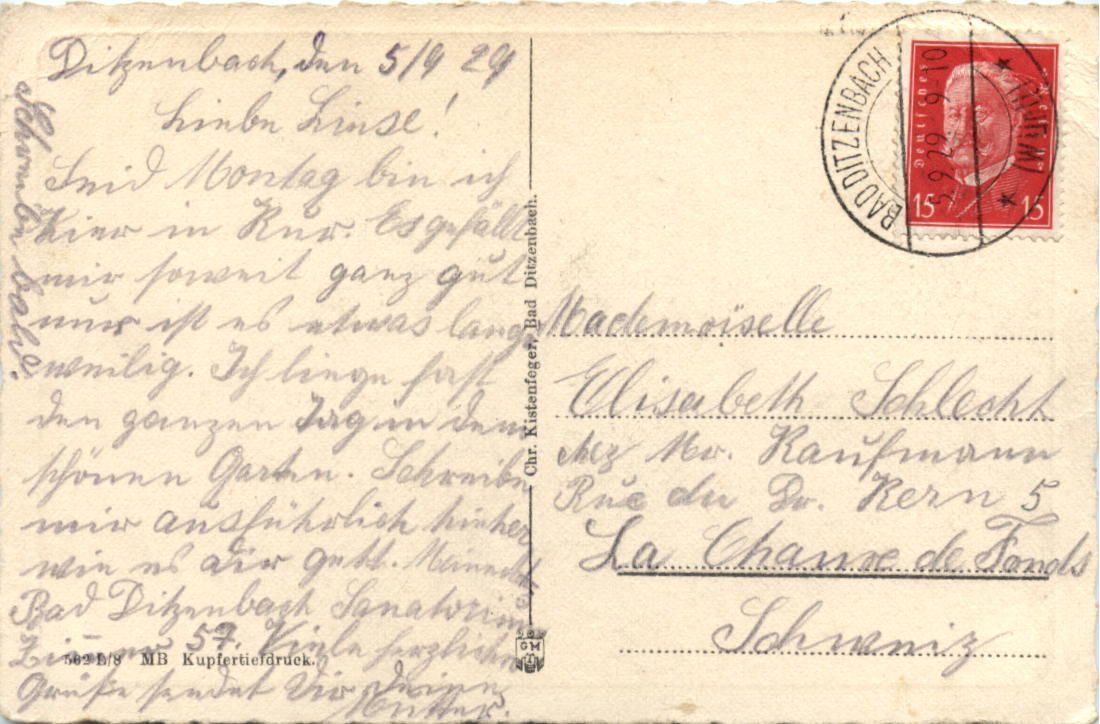 Ditzenbach, den 5/9 29
Liebe Liese!
Seid Montag bin ich
hier in Kur. Es gefällt
mir soweit ganz gut
nur ist es etwas lang
weilig. Ich liege fast
den ganzen Tag in dem
schönen Garten. Schreibe
mir ausführlich hieher
wie es dir geht. Meine
Bad Ditzenbach Sanatorium
Zimmer 57. Viele herzliche
Grüße sendet Dir Deine
Mutter.
Schreibe bald.
562 L/8 MB Kupfertiefdruck.
Chr. Kistenfeger, Bad Ditzenbach.
GM
BAD DITZENBACH
5.9.29 9-10
Deutsches Reich
15 15
Mademoiselle
Elisabeth Schlecht
chez Mr. Kaufmann
Rue du Dr. Kern 5
La Chaux de Fonds
Schweiz